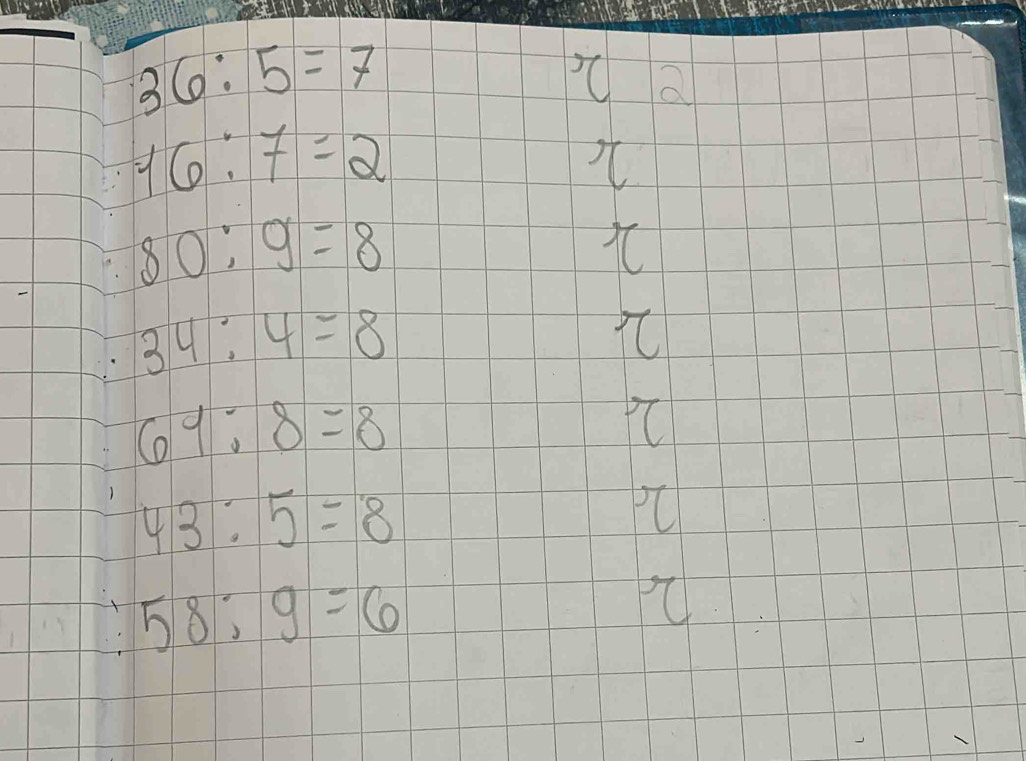 36 : 5 = 7 r 2
16 : 7 = 2 r
80 : 9 = 8 r
34 : 4 = 8 r
69 : 8 = 8 r
43 : 5 = 8 r
58 : 9 = 6 r